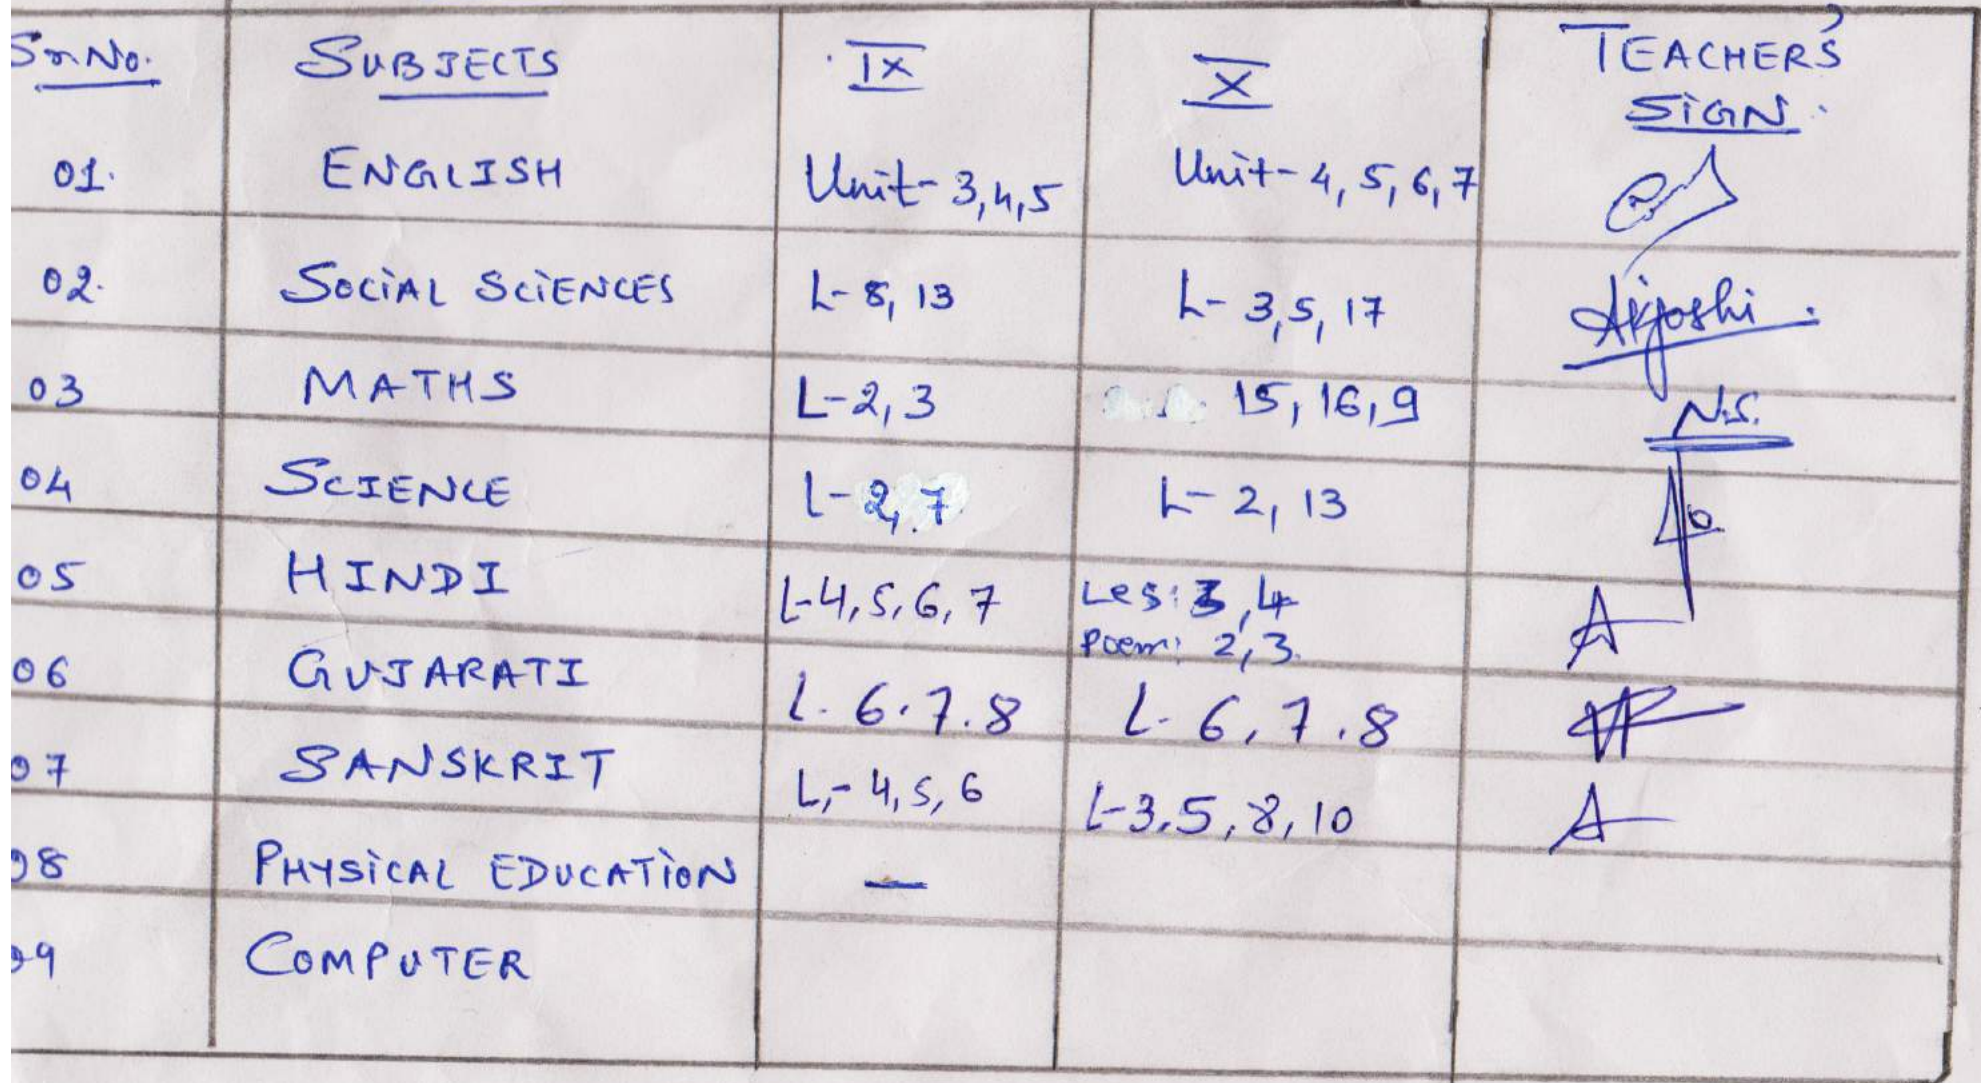 Sr.No. SUBJECTS IX X TEACHER'S SIGN.
01. ENGLISH Unit-3,4,5 Unit-4,5,6,7
02. SOCIAL SCIENCES L-8,13 L-3,5,17 Akjoshi.
03 MATHS L-2,3 15,16,9 N.S.
04 SCIENCE L-2,7 L-2,13
05 HINDI L-4,5,6,7 Les: 3,4
Poem: 2,3.
06 GUJARATI L.6.7.8 L-6,7.8
07 SANSKRIT L,-4,5,6 L-3,5,8,10
08 PHYSICAL EDUCATION —
09 COMPUTER